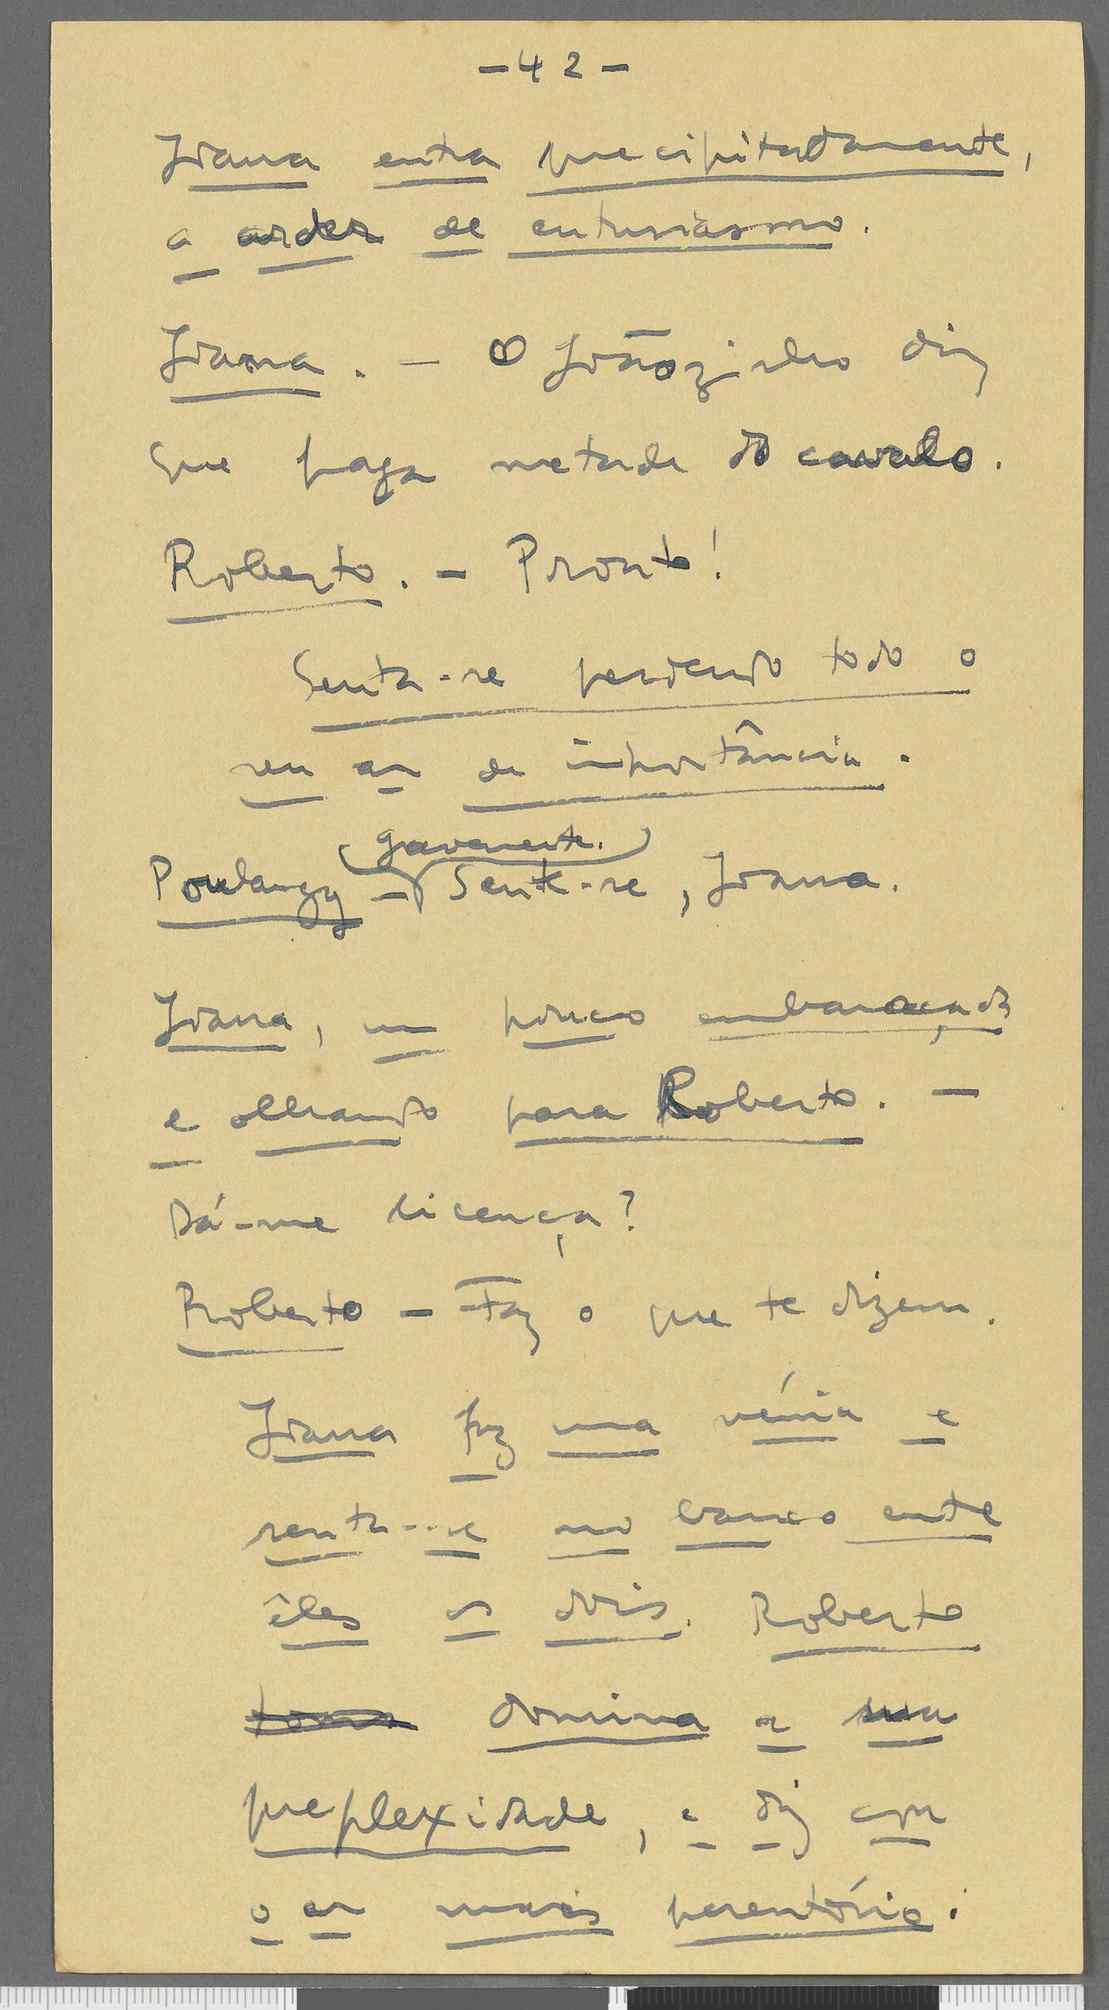 -42-
Joana entra precipitadamente,
a arder de entusiasmo.
Joana. - O Joãozinho diz
que paga metade do cavalo.
Roberto. - Pronto!
Senta-se perdendo todo o
seu ar de importância.
gravemente.
Poulangy - Sente-se, Joana.
Joana, um pouco embaraçada
e olhando para Roberto. -
Dá-me licença?
Roberto - Faz o que te dizem.
Joana faz uma vénia e
senta-se no banco entre
êles os dois. Roberto
toma domina a sua
preplexidade, e diz com
o ar mais perentório: